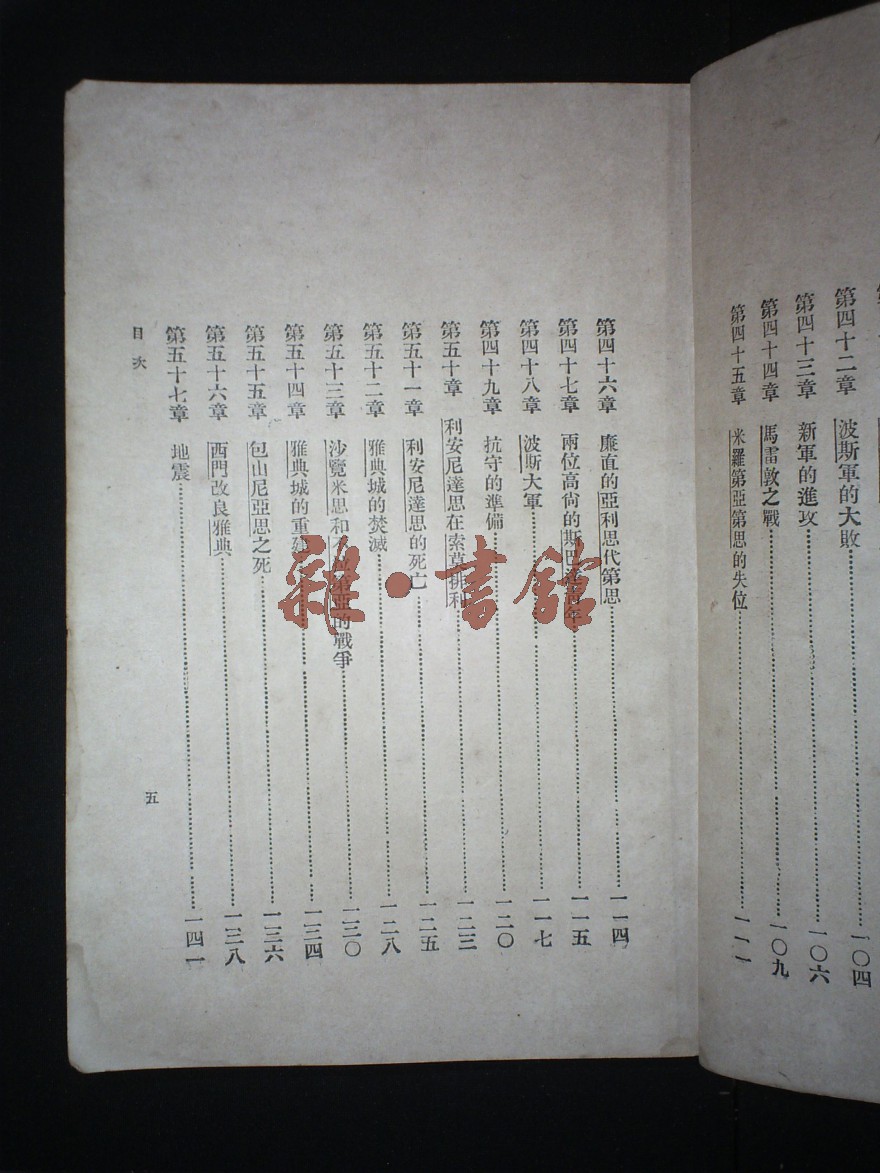 第四十二章　波斯軍的大敗……一〇四
第四十三章　新軍的進攻……一〇六
第四十四章　馬雷敦之戰……一〇九
第四十五章　米羅第亞第思的失位……一一一
第四十六章　廉直的亞利思代第思……一一四
第四十七章　兩位高尙的斯巴達靑年……一一五
第四十八章　波斯大軍……一一七
第四十九章　抗守的準備……一二〇
第五十章　利安尼達思在索莫排利……一二三
第五十一章　利安尼達思的死亡……一二五
第五十二章　雅典城的焚滅……一二八
第五十三章　沙覽米思和 位第亞的戰爭……一三〇
第五十四章　雅典城的重建……一三四
第五十五章　包山尼亞思之死……一三六
第五十六章　西門改良雅典……一三八
第五十七章　地震……一四一
目次
五
雜·書館